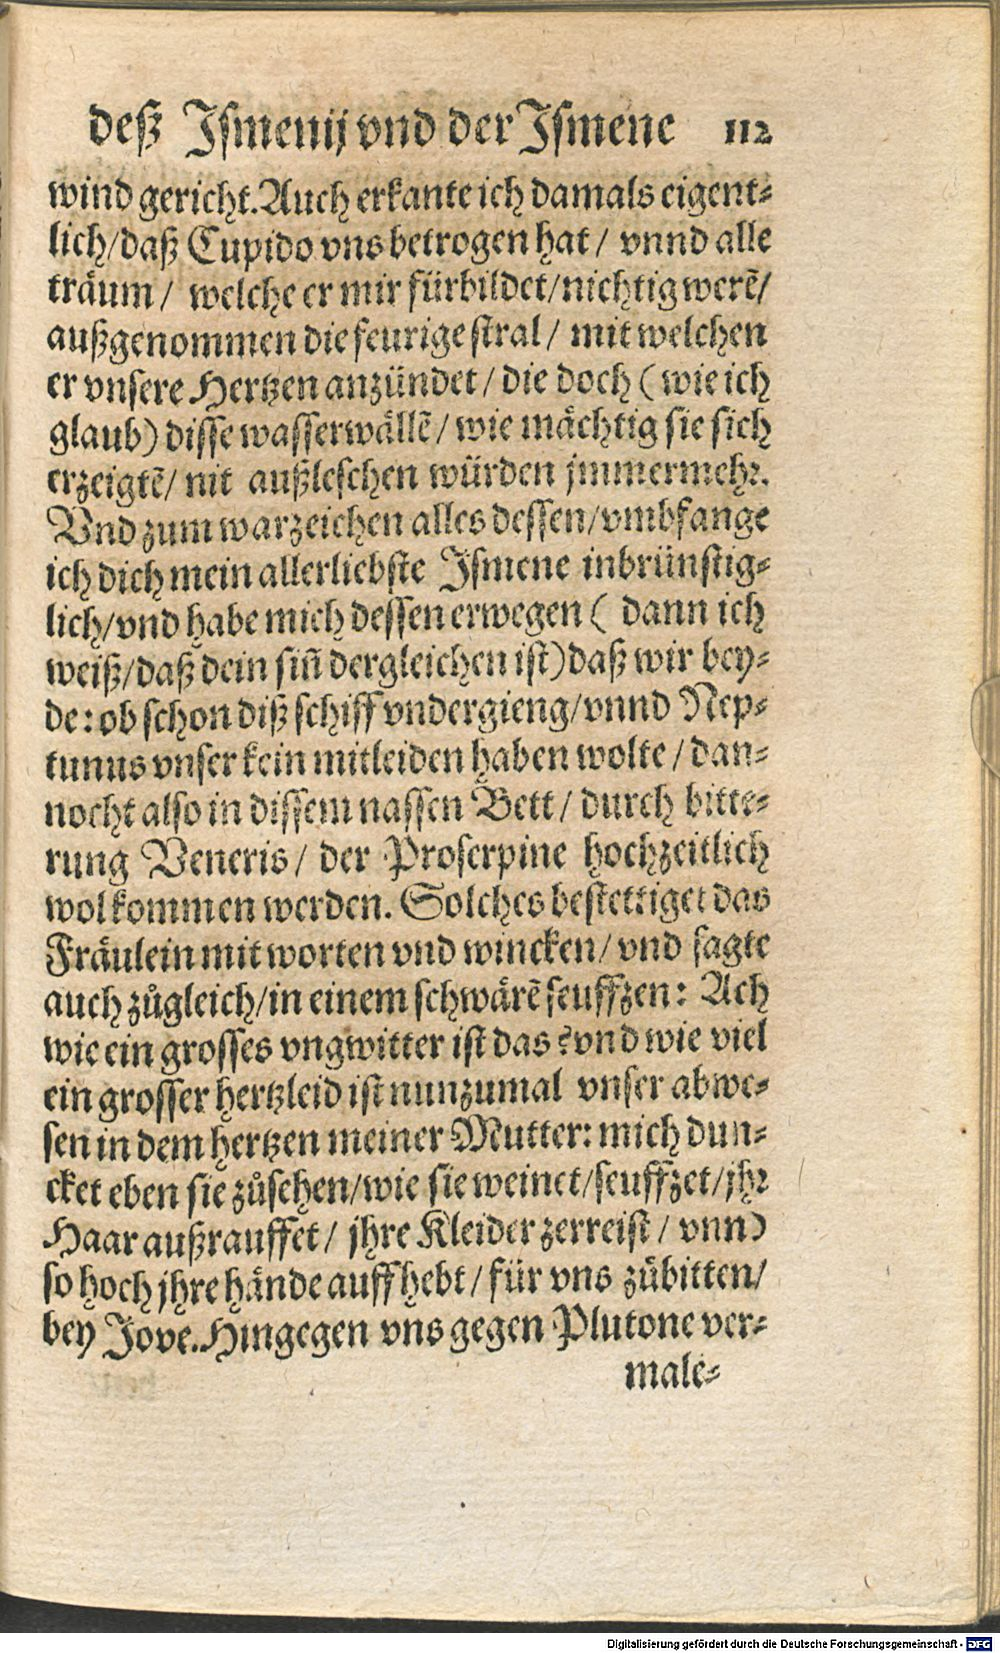 deß Ismenij vnd der Ismene 112
wind gericht. Auch erkante ich damals eigent-
lich/daß Cupido vns betrogen hat/ vnnd alle
träum/ welche er mir fürbildet/nichtig werē/
außgenommen die feurige stral/ mit welchen
er vnsere Hertzen anzündet/ die doch ( wie ich
glaub) disse wasserwällē/ wie mächtig sie sich
erzeigtē/ nit außleschen würden jmmermehr.
Vnd zum warzeichen alles dessen/vmbfange
ich dich mein allerliebste Ismene inbrünstig-
lich/vnd habe mich dessen erwegen ( dann ich
weiß/daß dein siñ dergleichen ist) daß wir bey-
de: ob schon diß schiff vndergieng/vnnd Nep-
tunus vnser kein mitleiden haben wolte/ dan-
nocht also in dissem nassen Bett/ durch bitte-
rung Veneris/ der Proserpine hochzeitlich
wolkommen werden. Solches bestettiget das
Fräulein mit worten vnd wincken/ vnd sagte
auch zůgleich/in einem schwärē seuffzen: Ach
wie ein grosses vngwitter ist das? vnd wie viel
ein grosser hertzleid ist nunzumal vnser abwe-
sen in dem hertzen meiner Mutter: mich dun-
cket eben sie zůsehen/wie sie weinet/seuffzet/jhr
Haar außrauffet/ jhre Kleider zerreist/ vnnd
so hoch jhre hände auffhebt/ für vns zůbitten/
bey Jove. Hingegen vns gegen Plutone ver-
male-
Digitalisierung gefördert durch die Deutsche Forschungsgemeinschaft - DFG